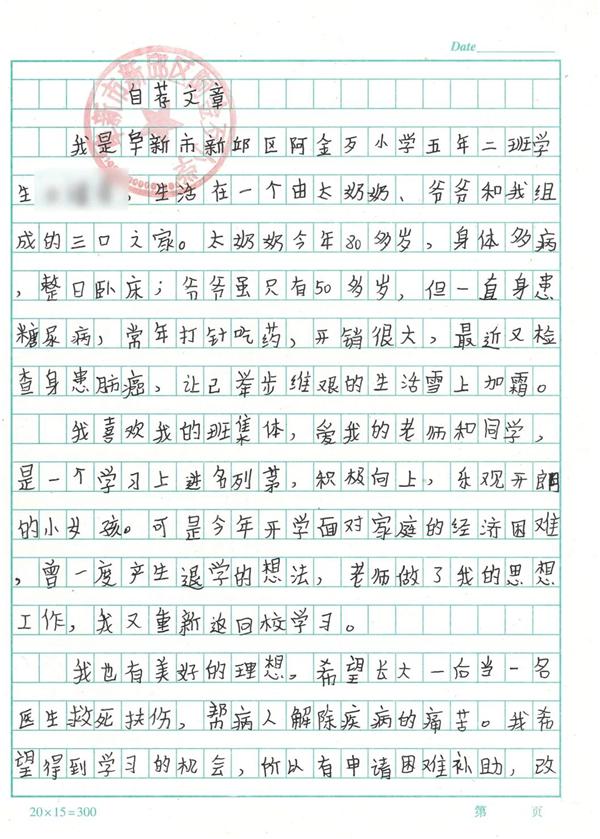 Date
自荐文章
我是阜新市新邱区阿金歹小学五年二班学
生，生活在一个由太奶奶、爷爷和我组
成的三口之家。太奶奶今年80多岁，身体多病
，整日卧床；爷爷虽只有50多岁，但一直身患
糖尿病，常年打针吃药，开销很大，最近又检
查身患肺癌，让已举步维艰的生活雪上加霜。
我喜欢我的班集体，爱我的老师和同学，
是一个学习上进名列第，积极向上，乐观开朗
的小女孩。可是今年开学面对家庭的经济困难
，曾一度产生退学的想法，老师做了我的思想
工作，我又重新返回校学习。
我也有美好的理想。希望长大一后当一名
医生救死扶伤，帮病人解除疾病的痛苦。我希
望得到学习的机会，所以有申请困难补助，改
20×15=300 第 页